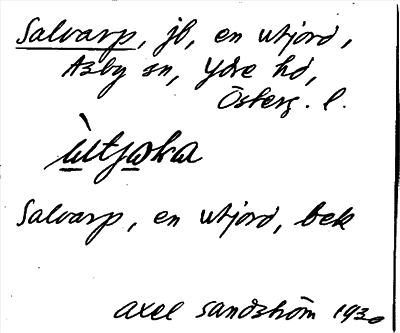 Salvarp, jb, en utjord,
Asby sn, Ydre hd,
Österg. l.
ùtjɷka
Salvarp, en utjord, bek
Axel Sandström 1930